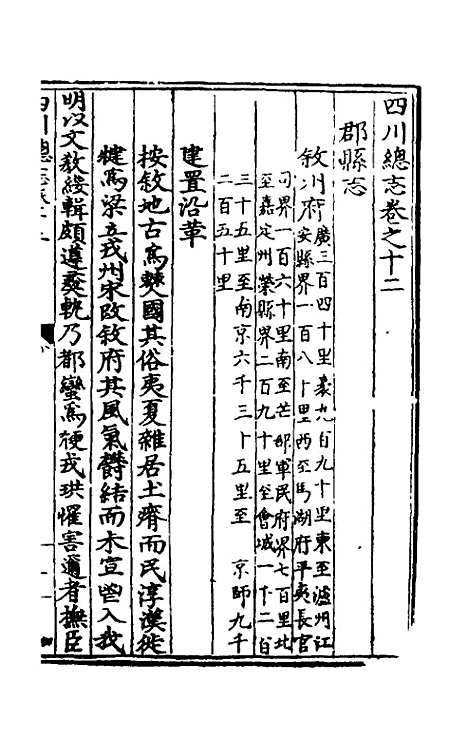 四川總志卷之十二
郡縣志
敘州府廣三百四十里袤九百九十里東至瀘州江
安縣界一百八十里西至馬湖府平夷長官
司界一百六十里南至芒部軍民府界七百里北
至嘉定州榮縣界二百九十里至會城一千二百
三十五里至南京六千三十五里至 京師九千
二百五十里
建置沿革
按敘地古為僰國其俗夷夏雜居土瘠而民淳漢徙
犍為梁立戎州宋改敘府其風氣鬱結而未宣迨入我
明以文教綏輯頗遵憲軌乃都蠻為梗戎珙罹害邇者撫臣
四川總志卷十二